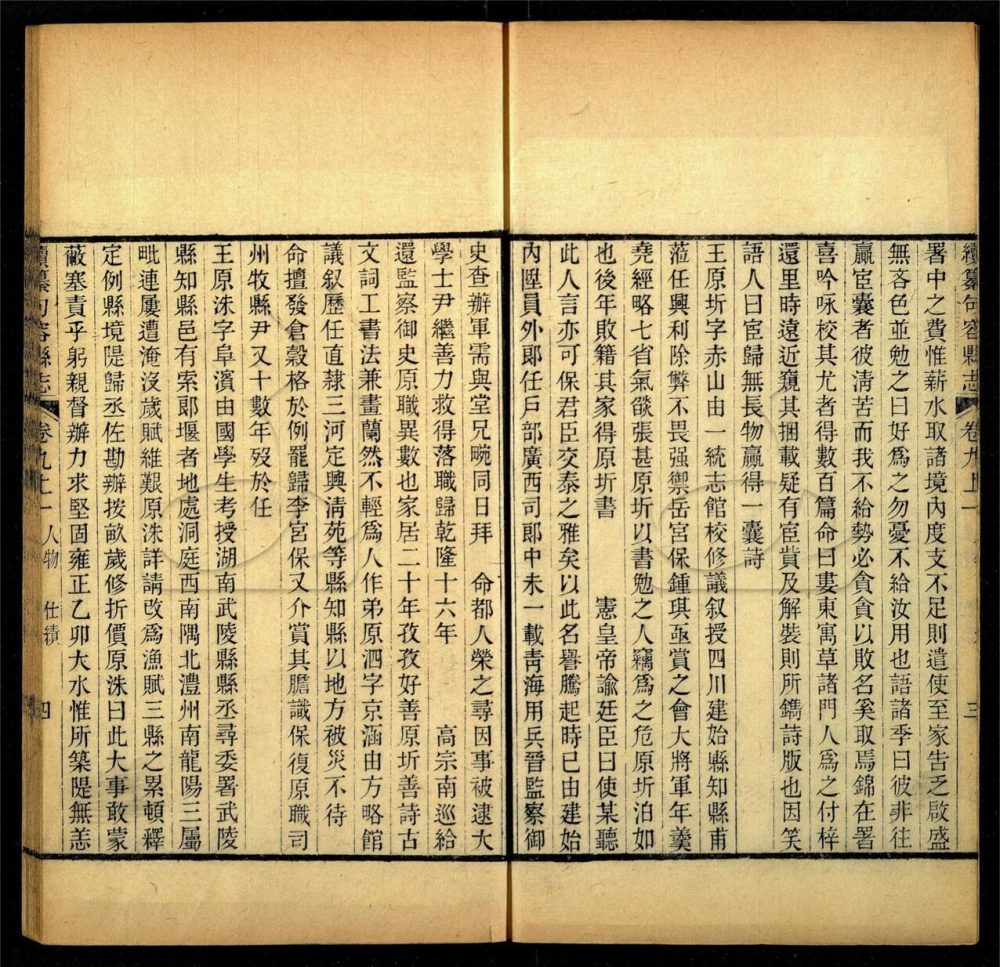 續纂句容縣志 卷九上 三
署中之費惟薪水取諸境內度支不足則遣使至家告乏啟盛
無吝色並勉之曰好為之勿憂不給汝用也語諸季曰彼非往
贏宦囊者彼淸苦而我不給勢必貪貪以敗名奚取焉錦在署
喜吟咏校其尤者得數百篇命曰婁東寓草諸門人為之付梓
還里時遠近窺其捆載疑有宦貲及解裝則所鐫詩版也因笑
語人曰宦歸無長物贏得一囊詩
王原圻字赤山由一統志館校修議叙授四川建始縣知縣甫
蒞任興利除弊不畏强禦岳宮保鍾琪亟賞之會大將軍年羹
堯經略七省氣燄張甚原圻以書勉之人竊為之危原圻泊如
也後年敗籍其家得原圻書 憲皇帝諭廷臣曰使某聽
此人言亦可保君臣交泰之雅矣以此名譽騰起時已由建始
內陞員外郎任戶部廣西司郎中未一載靑海用兵晉監察御
史查辦軍需與堂兄畹同日拜 命都人榮之尋因事被逮大
學士尹繼善力救得落職歸乾隆十六年 高宗南巡給
還監察御史原職異數也家居二十年孜孜好善原圻善詩古
文詞工書法兼畫蘭然不輕為人作弟原泗字京涵由方略館
議叙歷任直隸三河定興淸苑等縣知縣以地方被災不待
命擅發倉穀格於例罷歸李宮保又介賞其膽識保復原職司
州牧縣尹又十數年歿於任
王原洙字阜濱由國學生考授湖南武陵縣縣丞尋委署武陵
縣知縣邑有索郎堰者地處洞庭西南隅北澧州南龍陽三屬
毗連屢遭淹沒歲賦維艱原洙詳請改為漁賦三縣之累頓釋
定例縣境隄歸丞佐勘辦按畝歲修折價原洙曰此大事敢蒙
蔽塞責乎躬親督辦力求堅固雍正乙卯大水惟所築隄無恙
續纂句容縣志 卷九上 人物 仕績 四